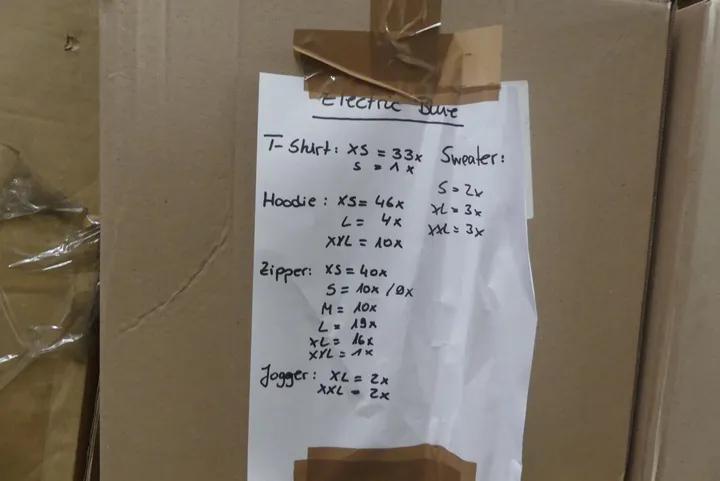 Electric Blue
T-Shirt: XS = 33x
S = 1x
Hoodie: XS = 46x
L = 4x
XXL = 10x
Zipper: XS = 40x
S = 10x / 0x
M = 10x
L = 19x
XL = 16x
XXL = 1x
Jogger: XL = 2x
XXL = 2x
Sweater:
S = 2x
XL = 3x
XXL = 3x